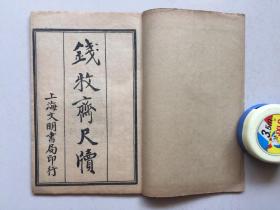 錢牧齋尺牘
上海文明書局印行